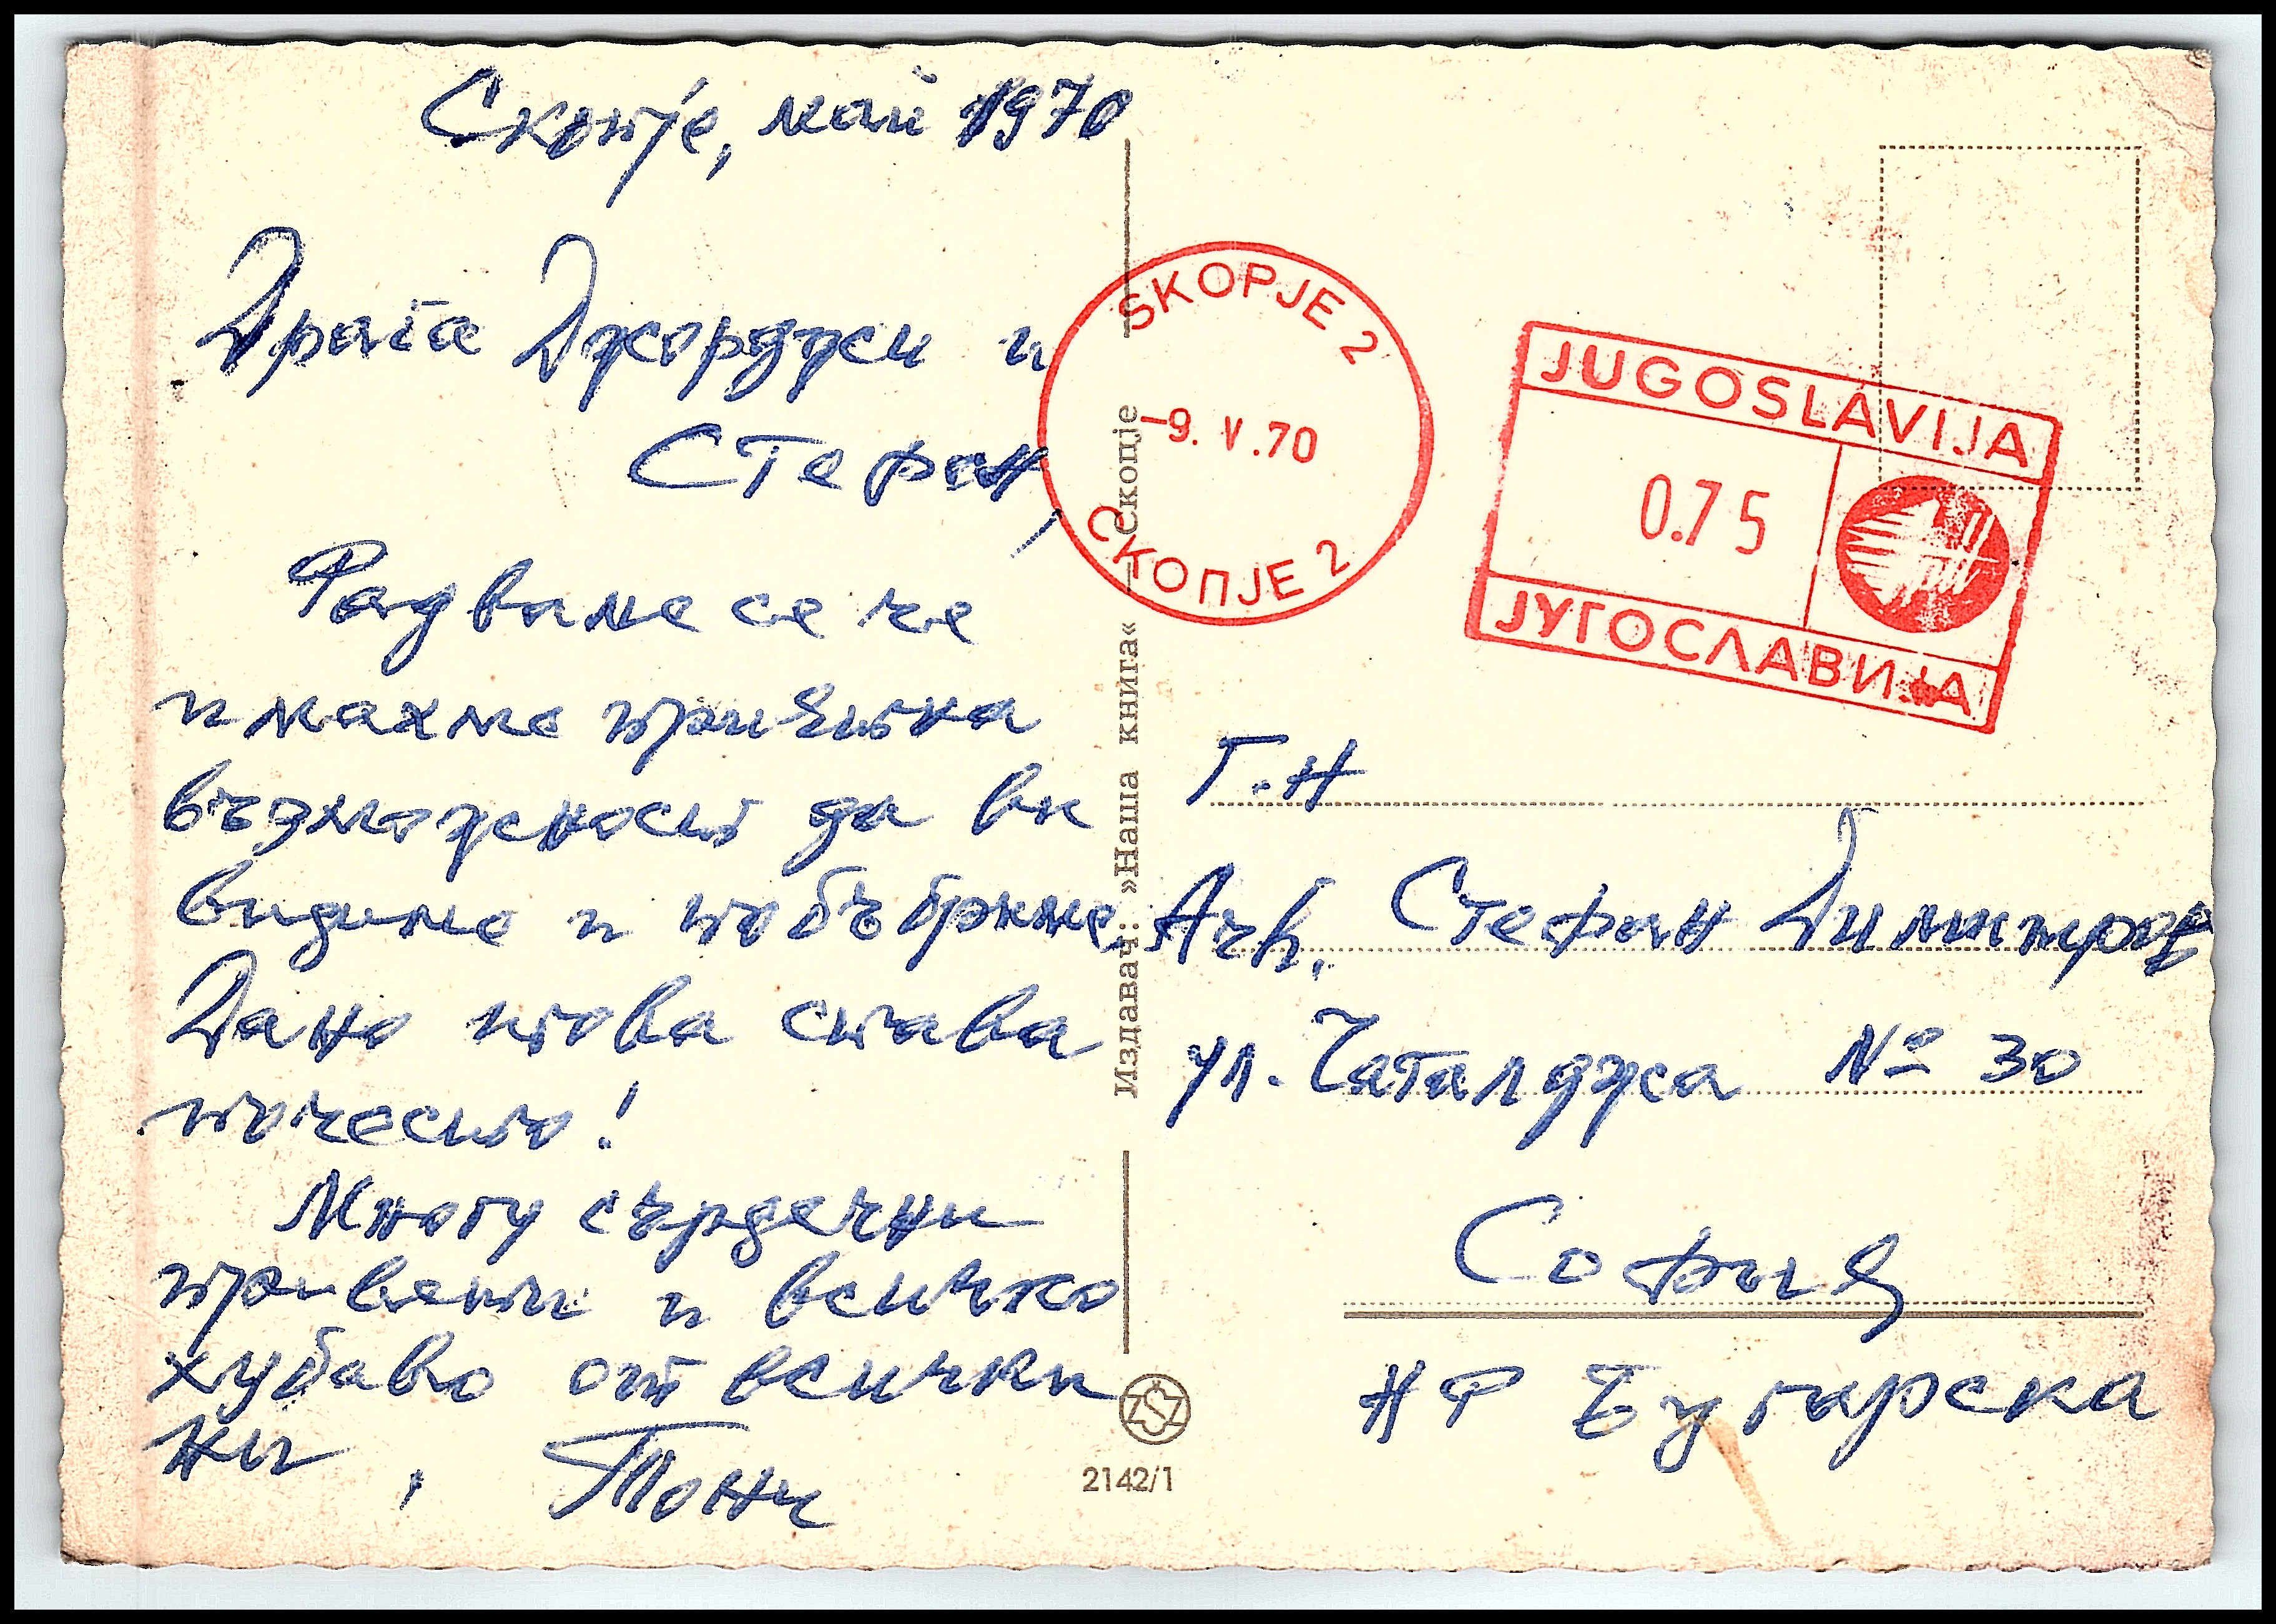 Скопје, май 1970
Драга Джорджи и
Стефан,
Радваме се че
имахме прилика
възможност да ви
видиме и побъбриме.
Дано това става
почесто!
Многу сърдечни
привети и всичко
хубаво от всички
ни, Тони
Издавач: »Наша книга« — Скопје
2142/1
SKOPJE 2
-9. V .70
СКОПЈЕ 2
JUGOSLAVIJA
0.75
ЈУГОСЛАВИЈА
Г.Н
Arh. Стефан Димитров
ул. Чаталджа № 30
София
НР Бугарска